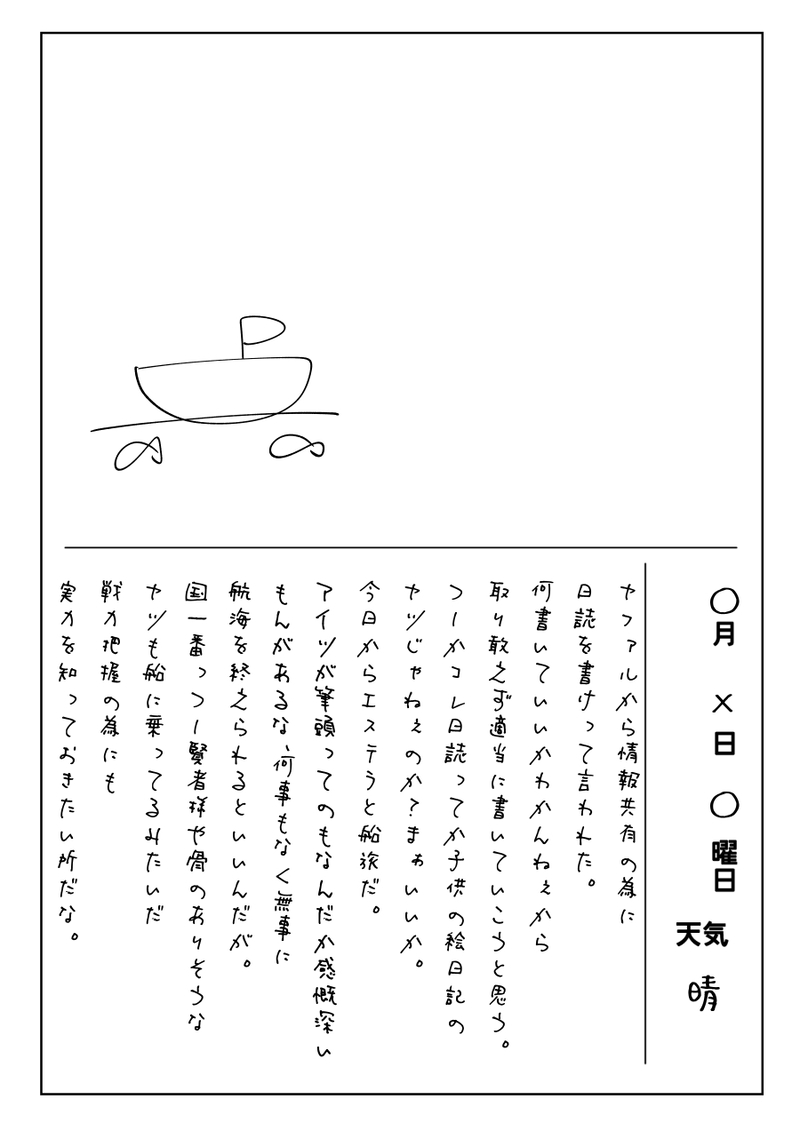 〇月 ×日 〇曜日 天気 晴
ヤファルから情報共有の為に
日誌を書けって言われた。
何書いていいかわかんねぇから
取り敢えず適当に書いていこうと思う。
つーかコレ日誌ってか子供の絵日記の
ヤツじゃねぇのか？まぁいいか。
今日からエステラと船旅だ。
アイツが筆頭ってのもなんだか感慨深い
もんがあるな、何事もなく無事に
航海を終えられるといいんだが。
国一番っつー賢者様や骨のありそうな
ヤツも船に乗ってるみたいだ
戦力把握の為にも
実力を知っておきたい所だな。